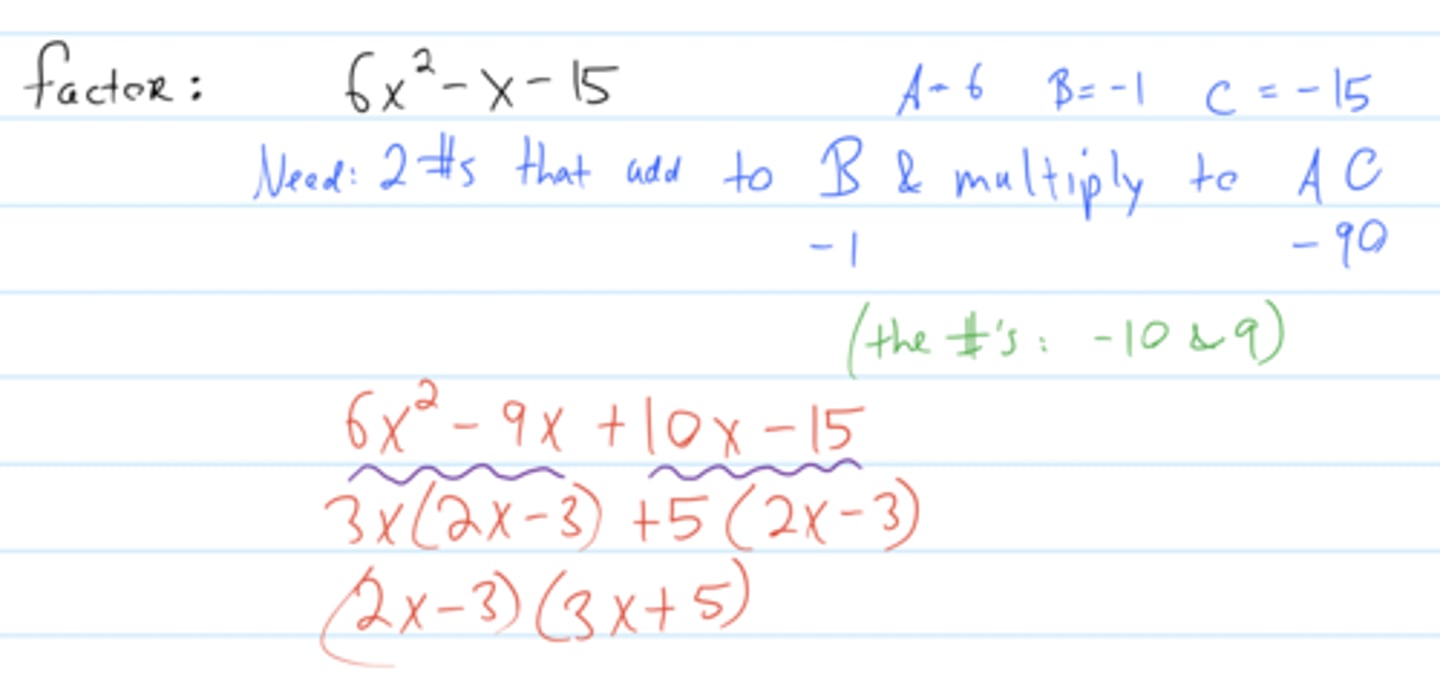 factor: 6x² - x - 15 A = 6 B = -1 C = -15
Need: 2 #s that add to B & multiply to AC
-1 -90
(the #'s: -10 & 9)
6x² - 9x + 10x - 15
3x(2x-3) +5(2x-3)
(2x-3)(3x+5)